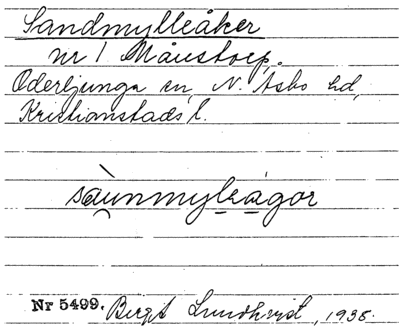 Sandmylleåker
nr 1 Månstorp.
Oderljunga sn, N. Åsbo hd,
Kristianstads l.
sàunmylɛágor
Nr 5499. Birgit Lundkvist, 1935.